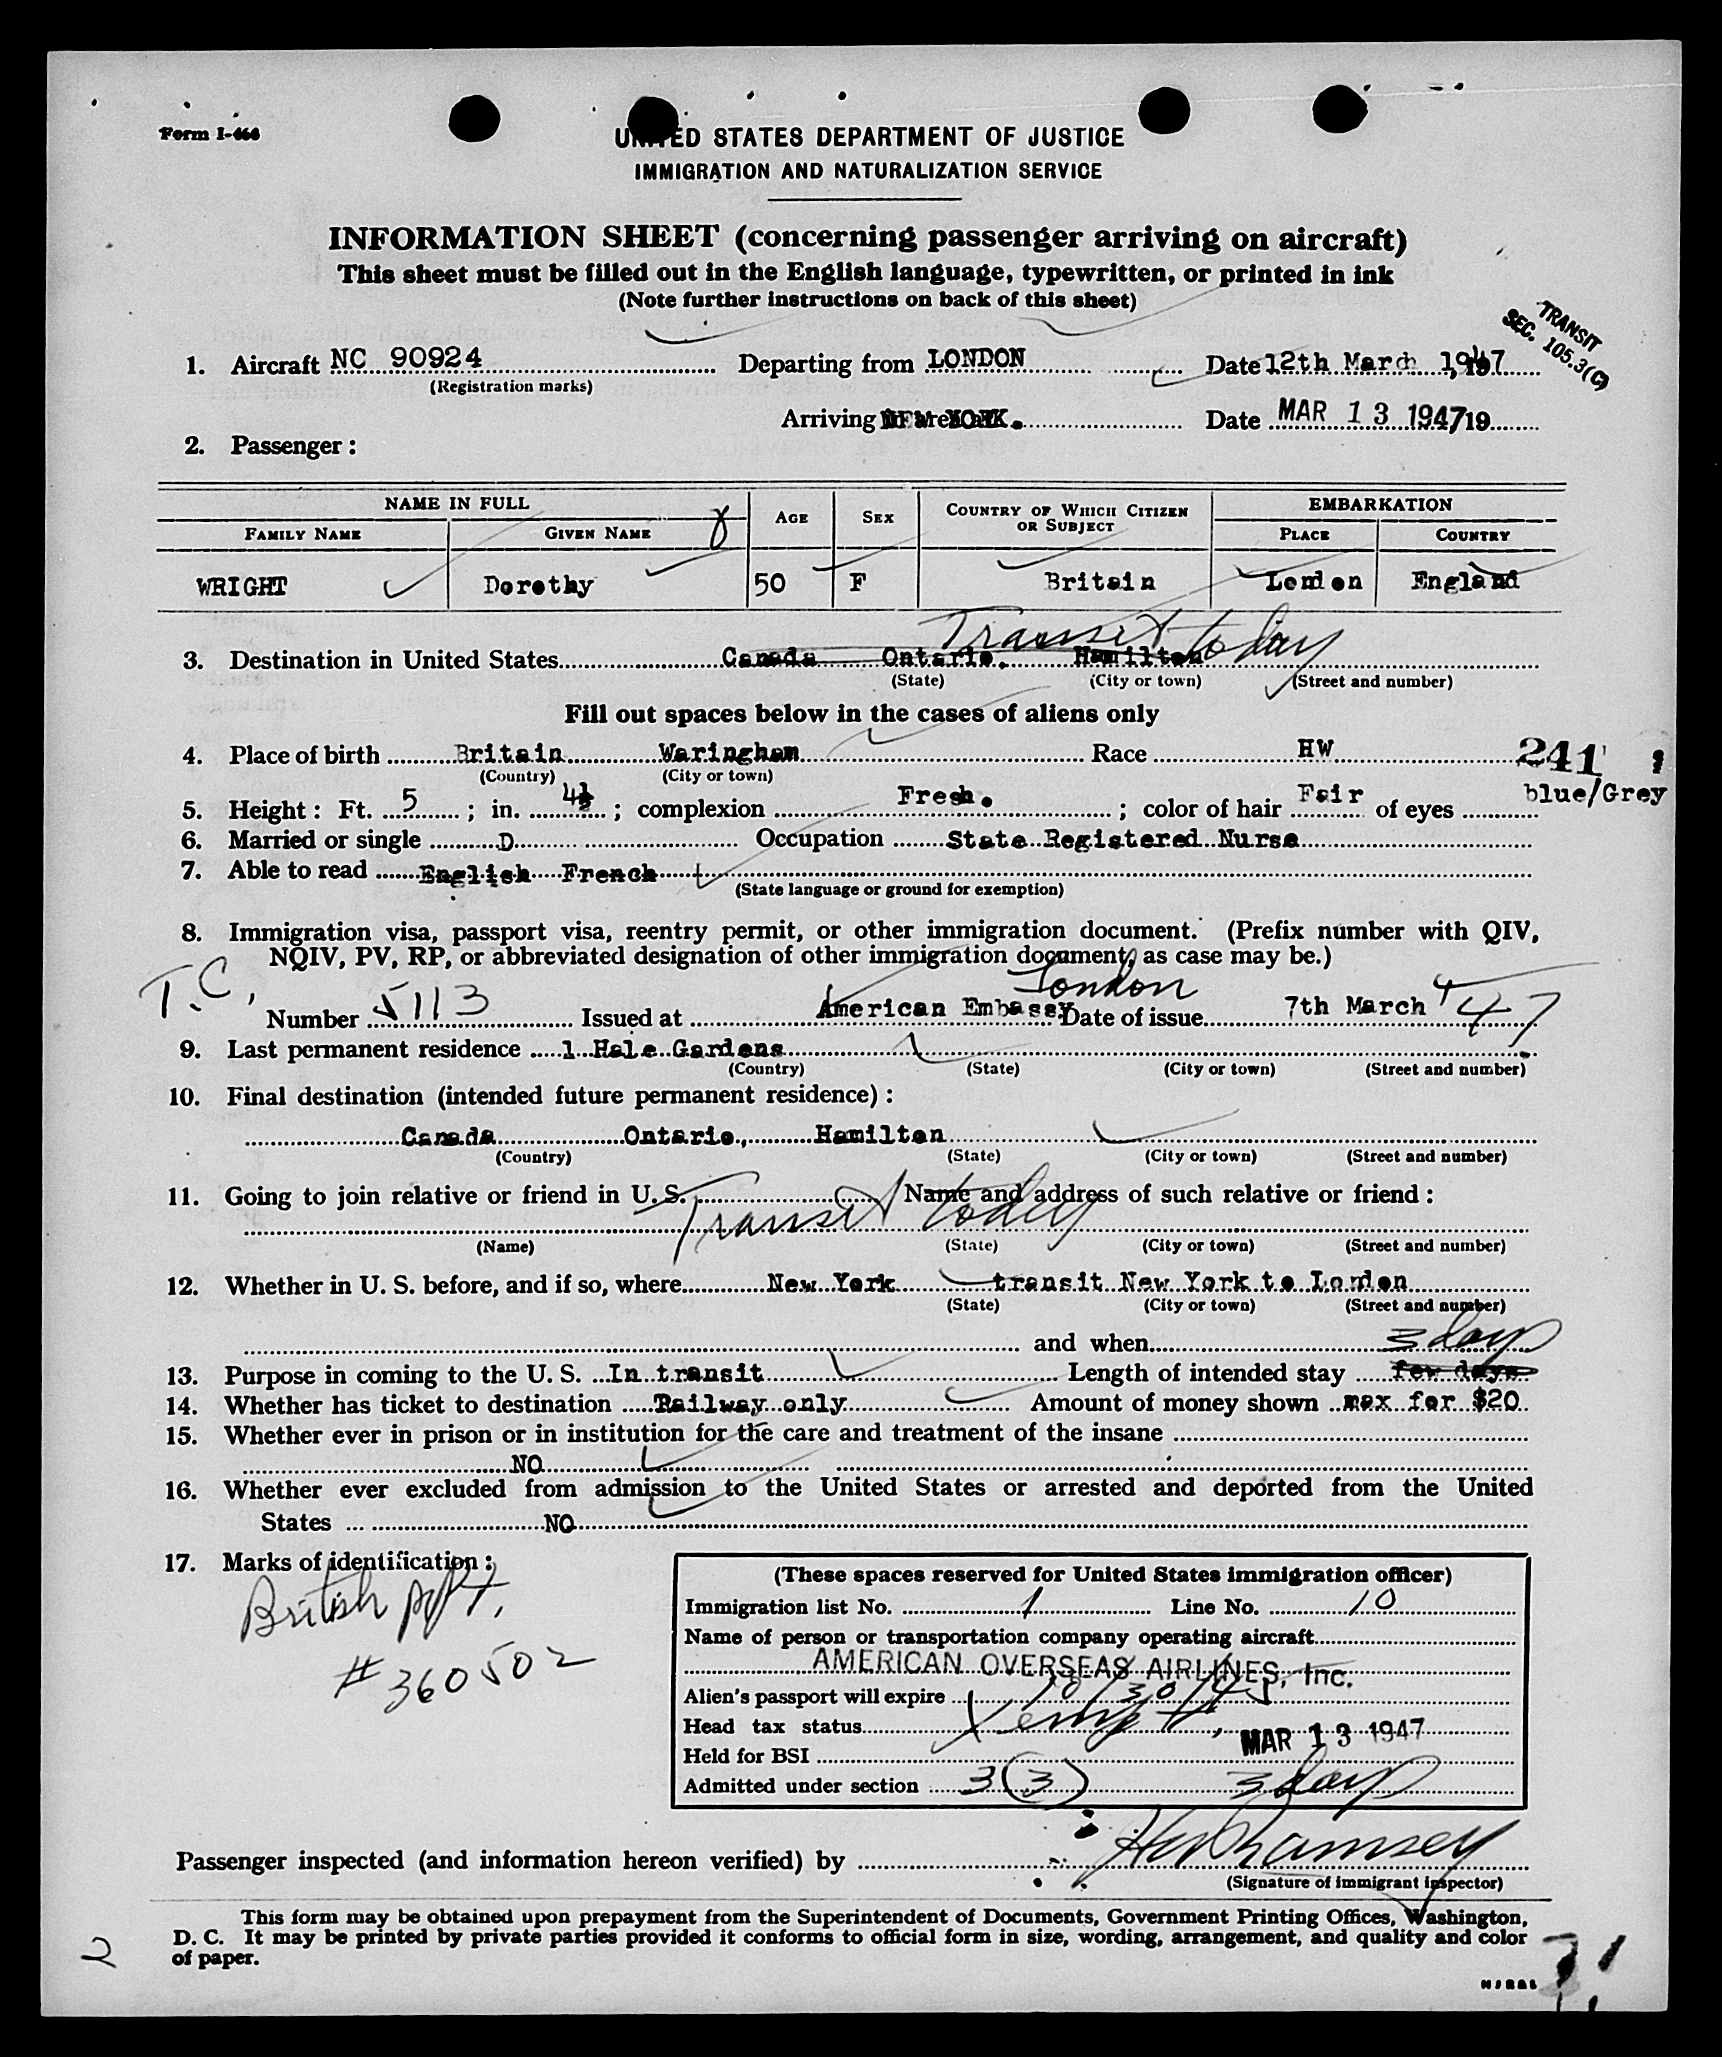 Form I-466
UNITED STATES DEPARTMENT OF JUSTICE
IMMIGRATION AND NATURALIZATION SERVICE
INFORMATION SHEET (concerning passenger arriving on aircraft)
This sheet must be filled out in the English language, typewritten, or printed in ink
(Note further instructions on back of this sheet)
TRANSIT
SEC. 105.3(C)
1. Aircraft NC 90924 Departing from LONDON Date 12th March 1947
(Registration marks)
Arriving YORK. Date MAR 13 1947 19
2. Passenger :
NAME IN FULL AGE SEX COUNTRY OF WHICH CITIZEN OR SUBJECT EMBARKATION
FAMILY NAME GIVEN NAME PLACE COUNTRY
WRIGHT Dorothy 50 F Britain London England
Transit today
3. Destination in United States Canada Ontario. Hamilton
(State) (City or town) (Street and number)
Fill out spaces below in the cases of aliens only
4. Place of birth Britain Waringham Race HW 241
(Country) (City or town)
5. Height : Ft. 5 ; in. 4½ ; complexion Fresh. ; color of hair Fair of eyes blue/Grey
6. Married or single D Occupation State Registered Nurse
7. Able to read English French
(State language or ground for exemption)
8. Immigration visa, passport visa, reentry permit, or other immigration document. (Prefix number with QIV,
NQIV, PV, RP, or abbreviated designation of other immigration document, as case may be.)
T.C. London
Number 5113 Issued at American Embassy Date of issue 7th March 47
9. Last permanent residence 1 Hale Gardens
(Country) (State) (City or town) (Street and number)
10. Final destination (intended future permanent residence) :
Canada Ontario, Hamilton
(Country) (State) (City or town) (Street and number)
11. Going to join relative or friend in U. S. Name and address of such relative or friend :
Transit today
(Name) (State) (City or town) (Street and number)
12. Whether in U. S. before, and if so, where New York transit New York to London
(State) (City or town) (Street and number)
and when
3 days
13. Purpose in coming to the U. S. In transit Length of intended stay few days
14. Whether has ticket to destination Railway only Amount of money shown max for $20
15. Whether ever in prison or in institution for the care and treatment of the insane
NO
16. Whether ever excluded from admission to the United States or arrested and deported from the United
States NO
17. Marks of identification :
British ppt.
# 360502
(These spaces reserved for United States immigration officer)
Immigration list No. 1 Line No. 10
Name of person or transportation company operating aircraft
AMERICAN OVERSEAS AIRLINES, Inc.
Alien's passport will expire
Head tax status Exempt, MAR 13 1947
Held for BSI
Admitted under section 3(3) 3 days
Passenger inspected (and information hereon verified) by
(Signature of immigrant inspector)
This form may be obtained upon prepayment from the Superintendent of Documents, Government Printing Offices, Washington,
D. C. It may be printed by private parties provided it conforms to official form in size, wording, arrangement, and quality and color
of paper.
2